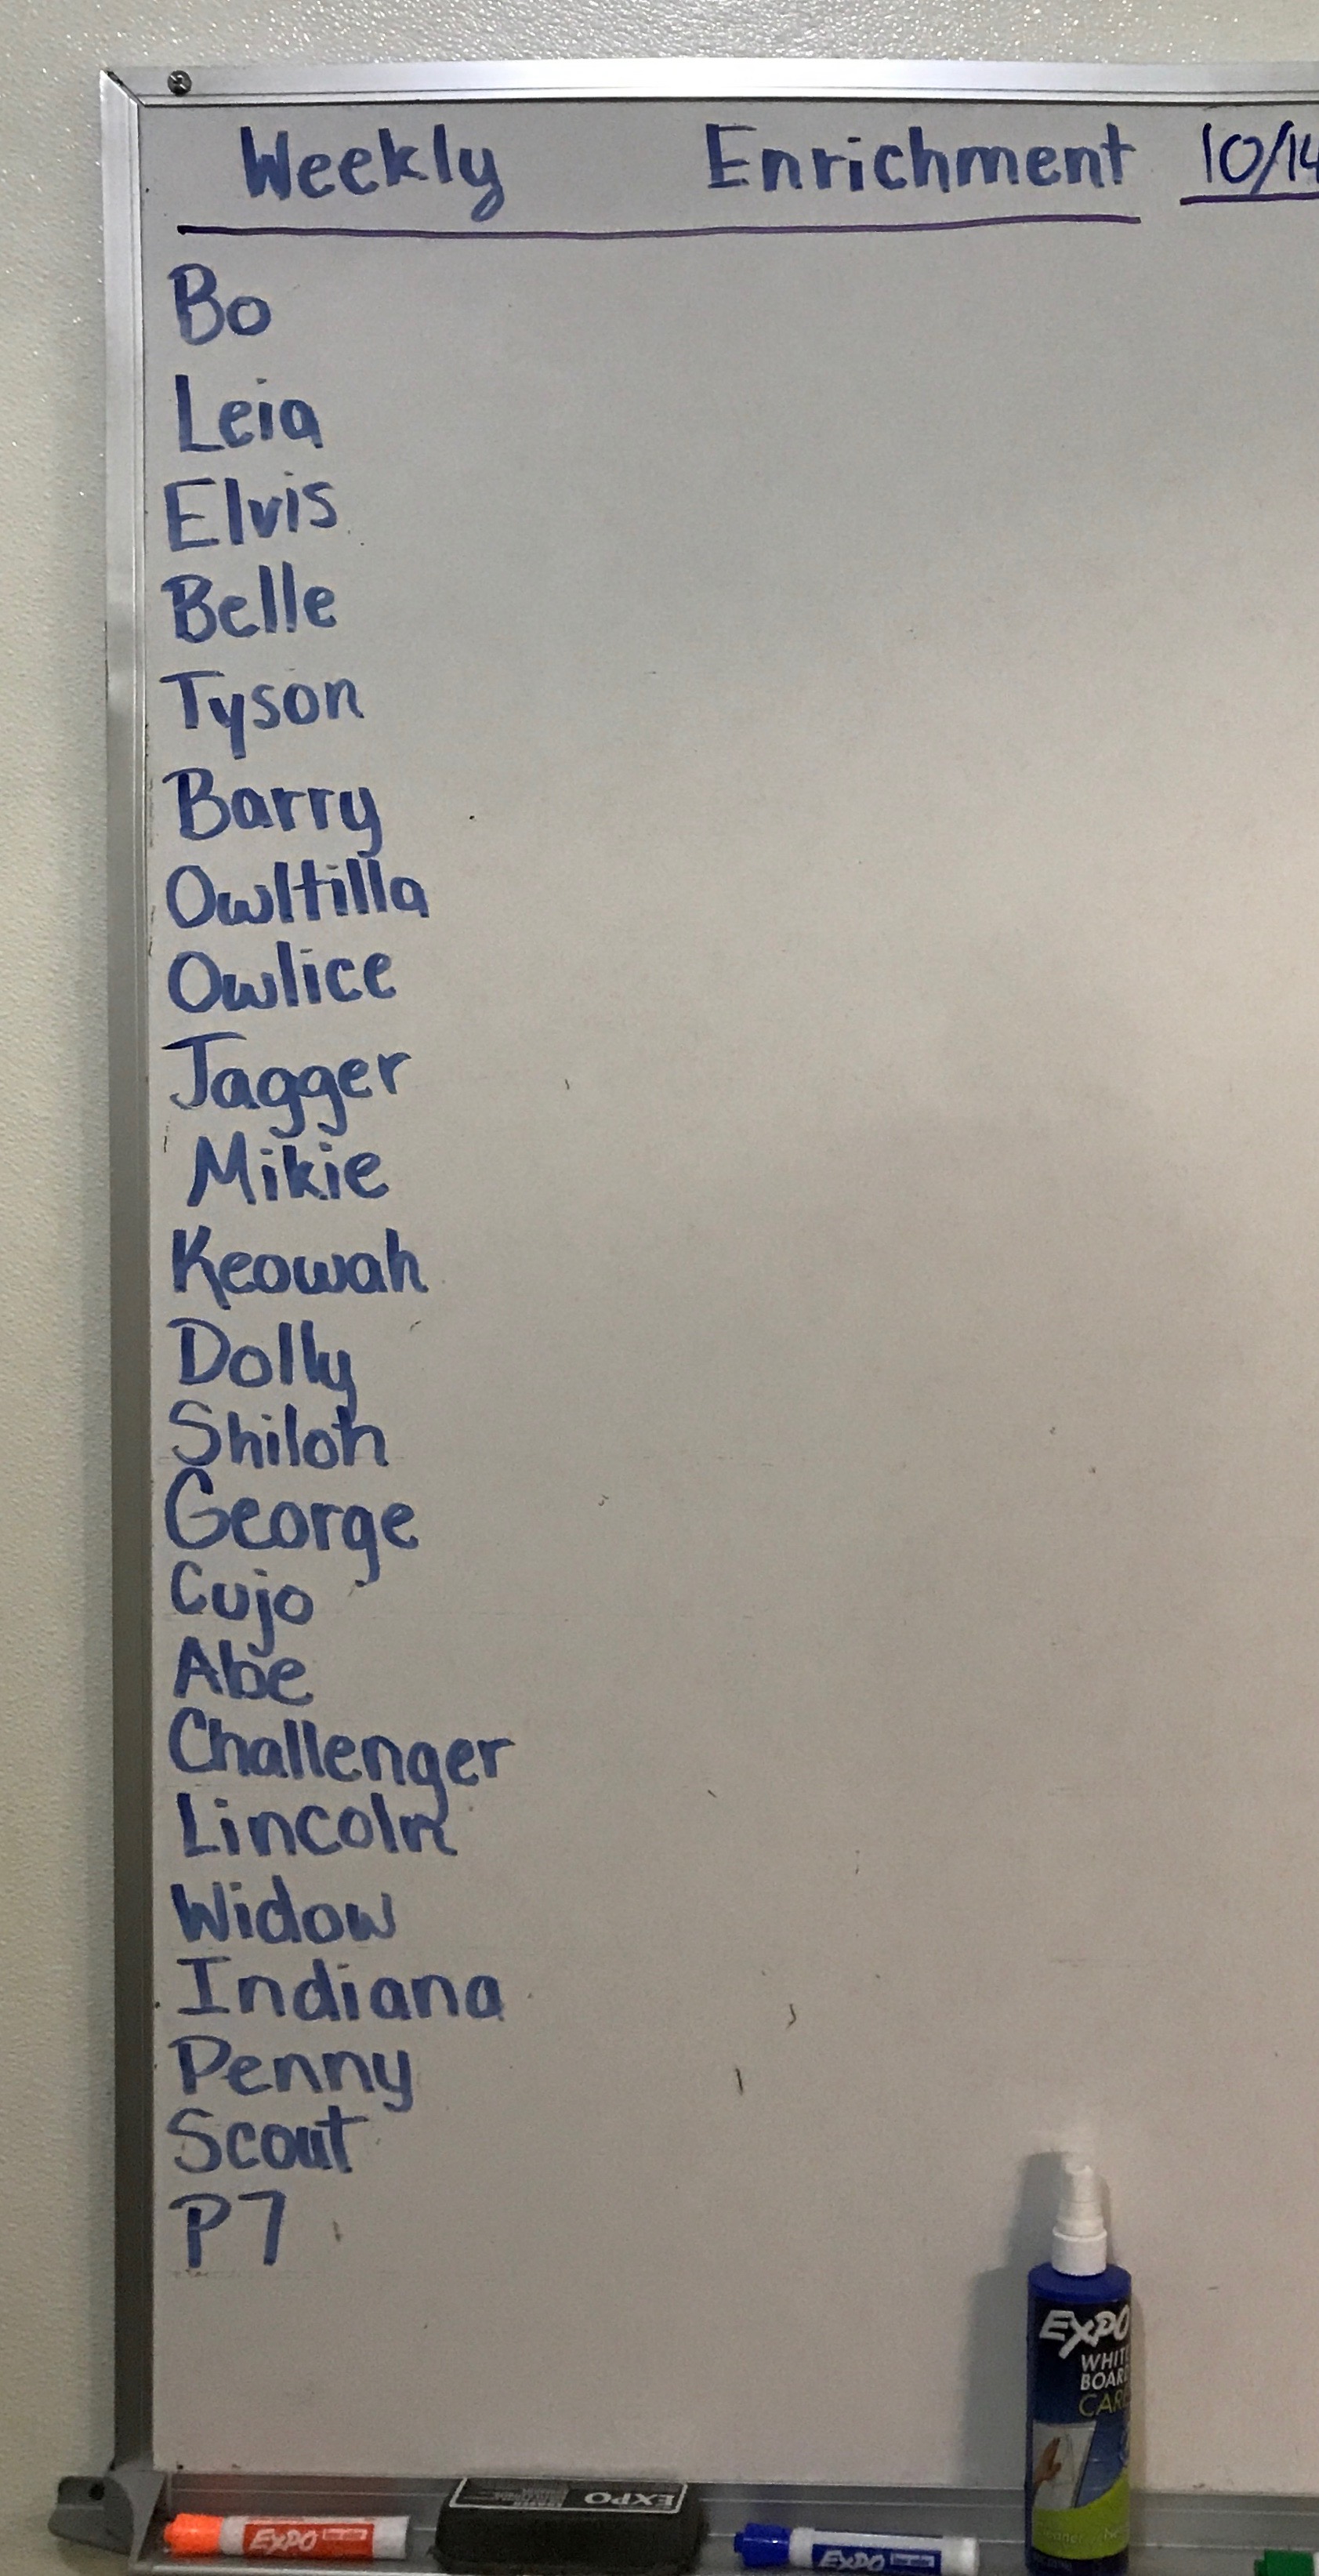 Weekly Enrichment 10/14
Bo
Leia
Elvis
Belle
Tyson
Barry
Owltilla
Owlice
Jagger
Mikie
Keowah
Dolly
Shiloh
George
Cujo
Abe
Challenger
Lincoln
Widow
Indiana
Penny
Scout
P7
EXPO
WHIT
BOAR
CAR
EXPO
EXPO
EXPO